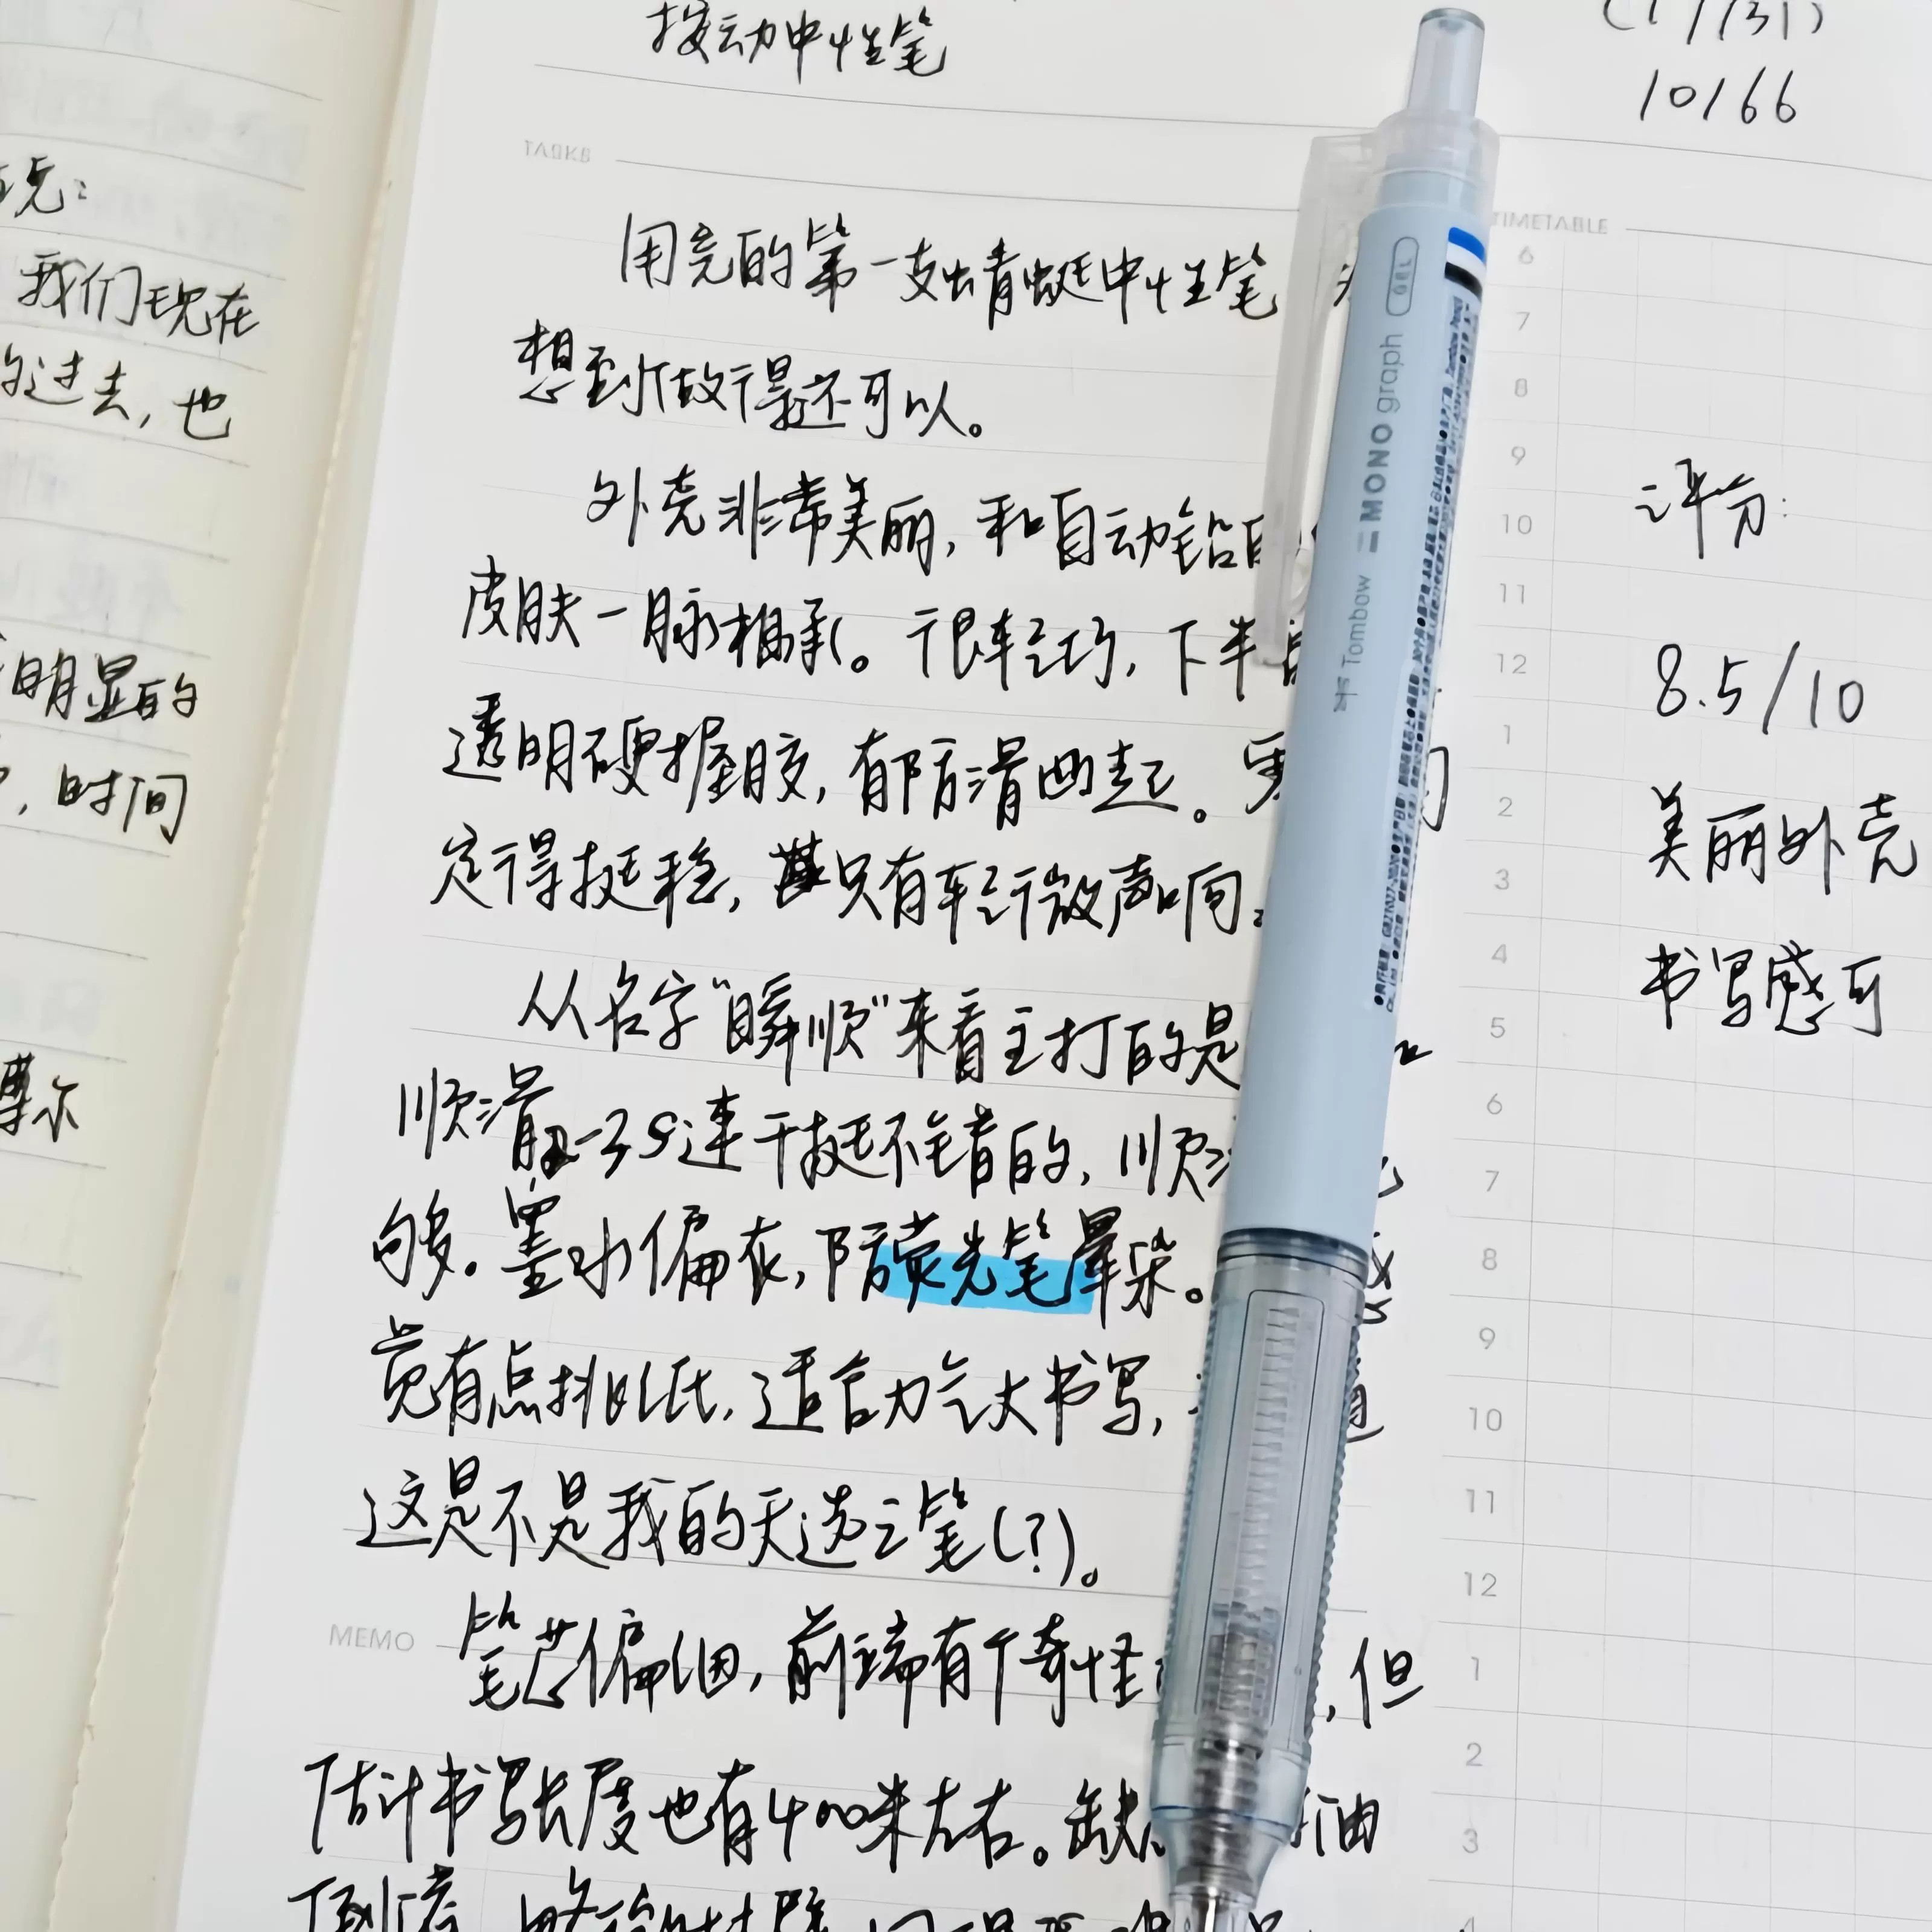 按动中性笔
10166
TASKS
用完的第一支蜻蜓中性笔
想到做得还可以。
外壳非常美丽,和自动铅
皮肤一脉相承。很轻巧,下半
透明硬握胶,有防滑凸起。
定得挺稳,只有轻微声响。
从名字“瞬顺”来看主打的是
顺滑2-3S速干挺不错的,顺
够。墨水偏灰,防荧光笔晕染。
觉有点挑纸,适合力气大书写,
这是不是我的天选之笔(?)。
MEMO
笔芯偏细,前端有个奇怪 ,但
估计书写长度也有400米左右。缺
TIMETABLE
6
7
8
9
10
11
12
1
2
3
4
5
6
7
8
9
10
11
12
1
2
3
评分:
8.5/10
美丽外壳
书写感可
Tombow
MONO graph
GEL
我们现在
过去,也
明显的
,时间
摩尔